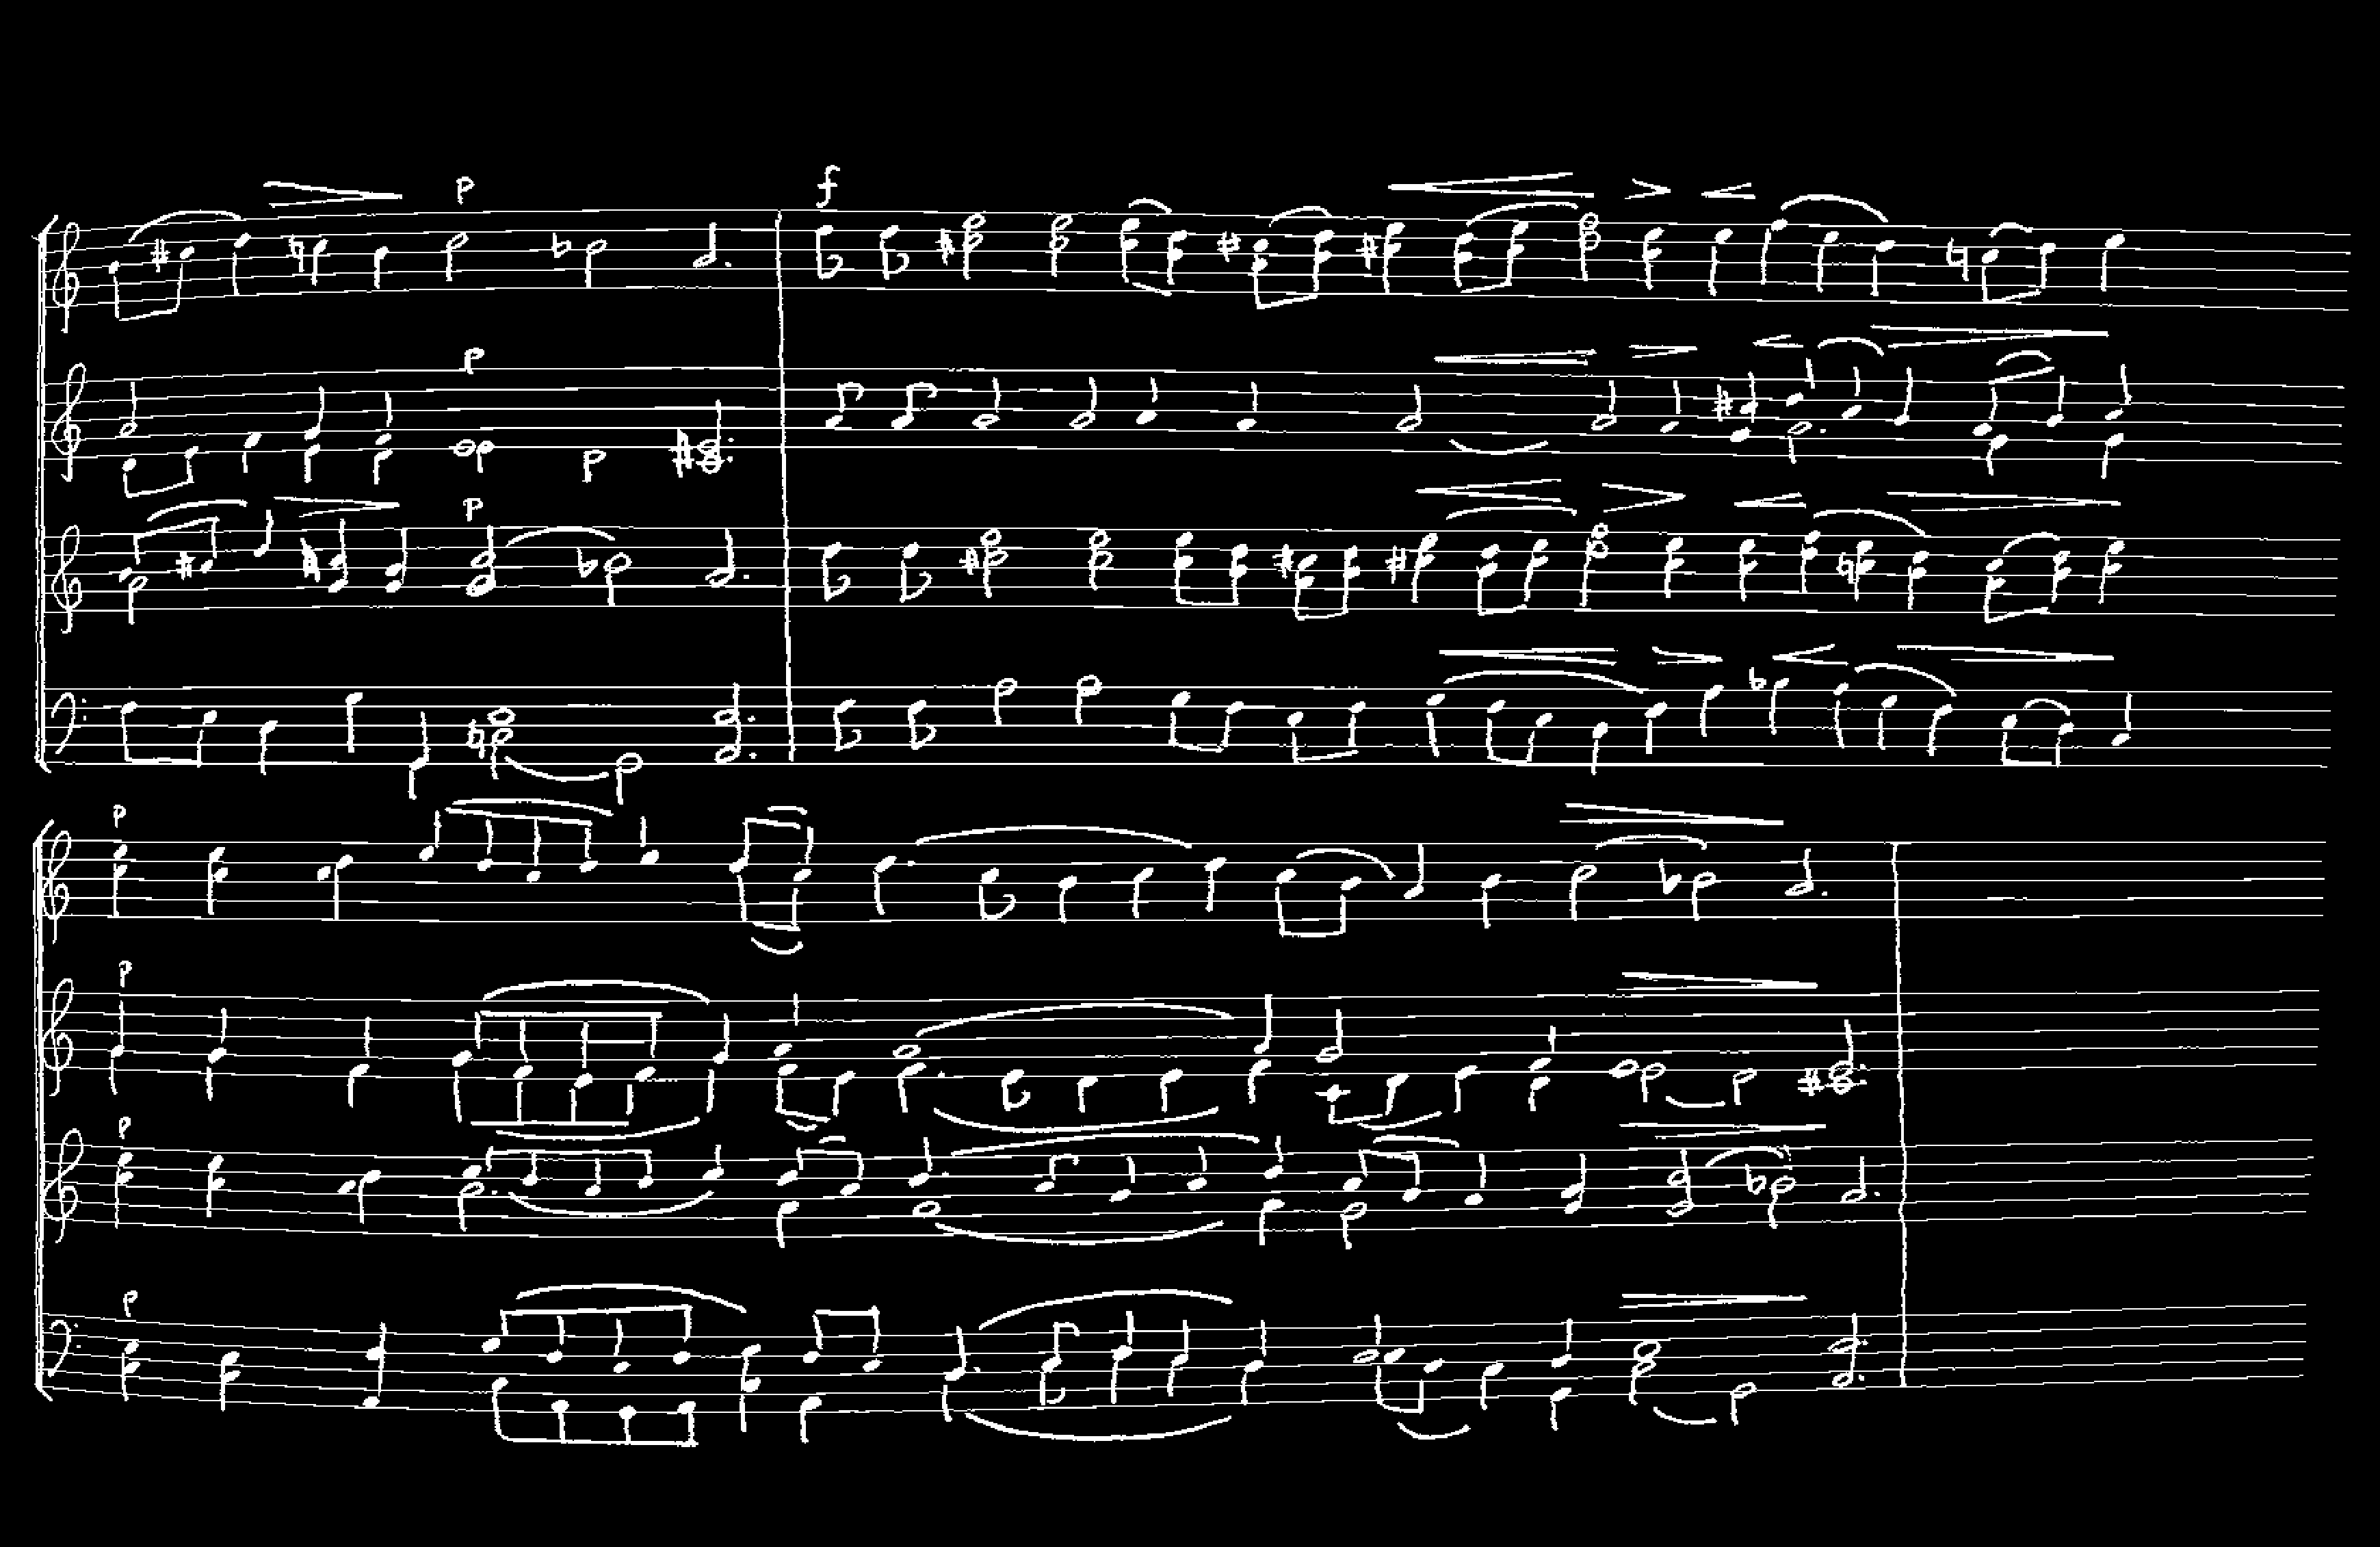 p
f
p
p
p
p
p
p